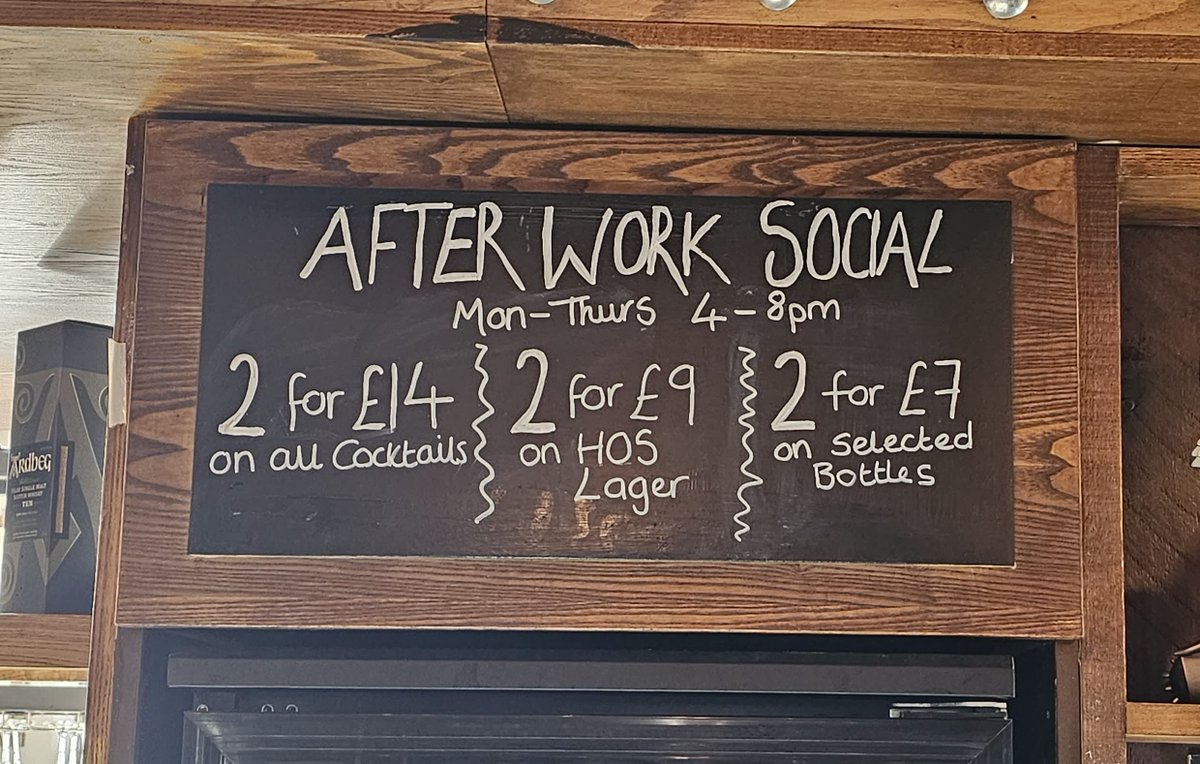 AFTER WORK SOCIAL
Mon-Thurs 4-8pm
2 for £14
on all Cocktails
2 for £9
on HOS
Lager
2 for £7
on selected
Bottles
Ardbeg
TEN